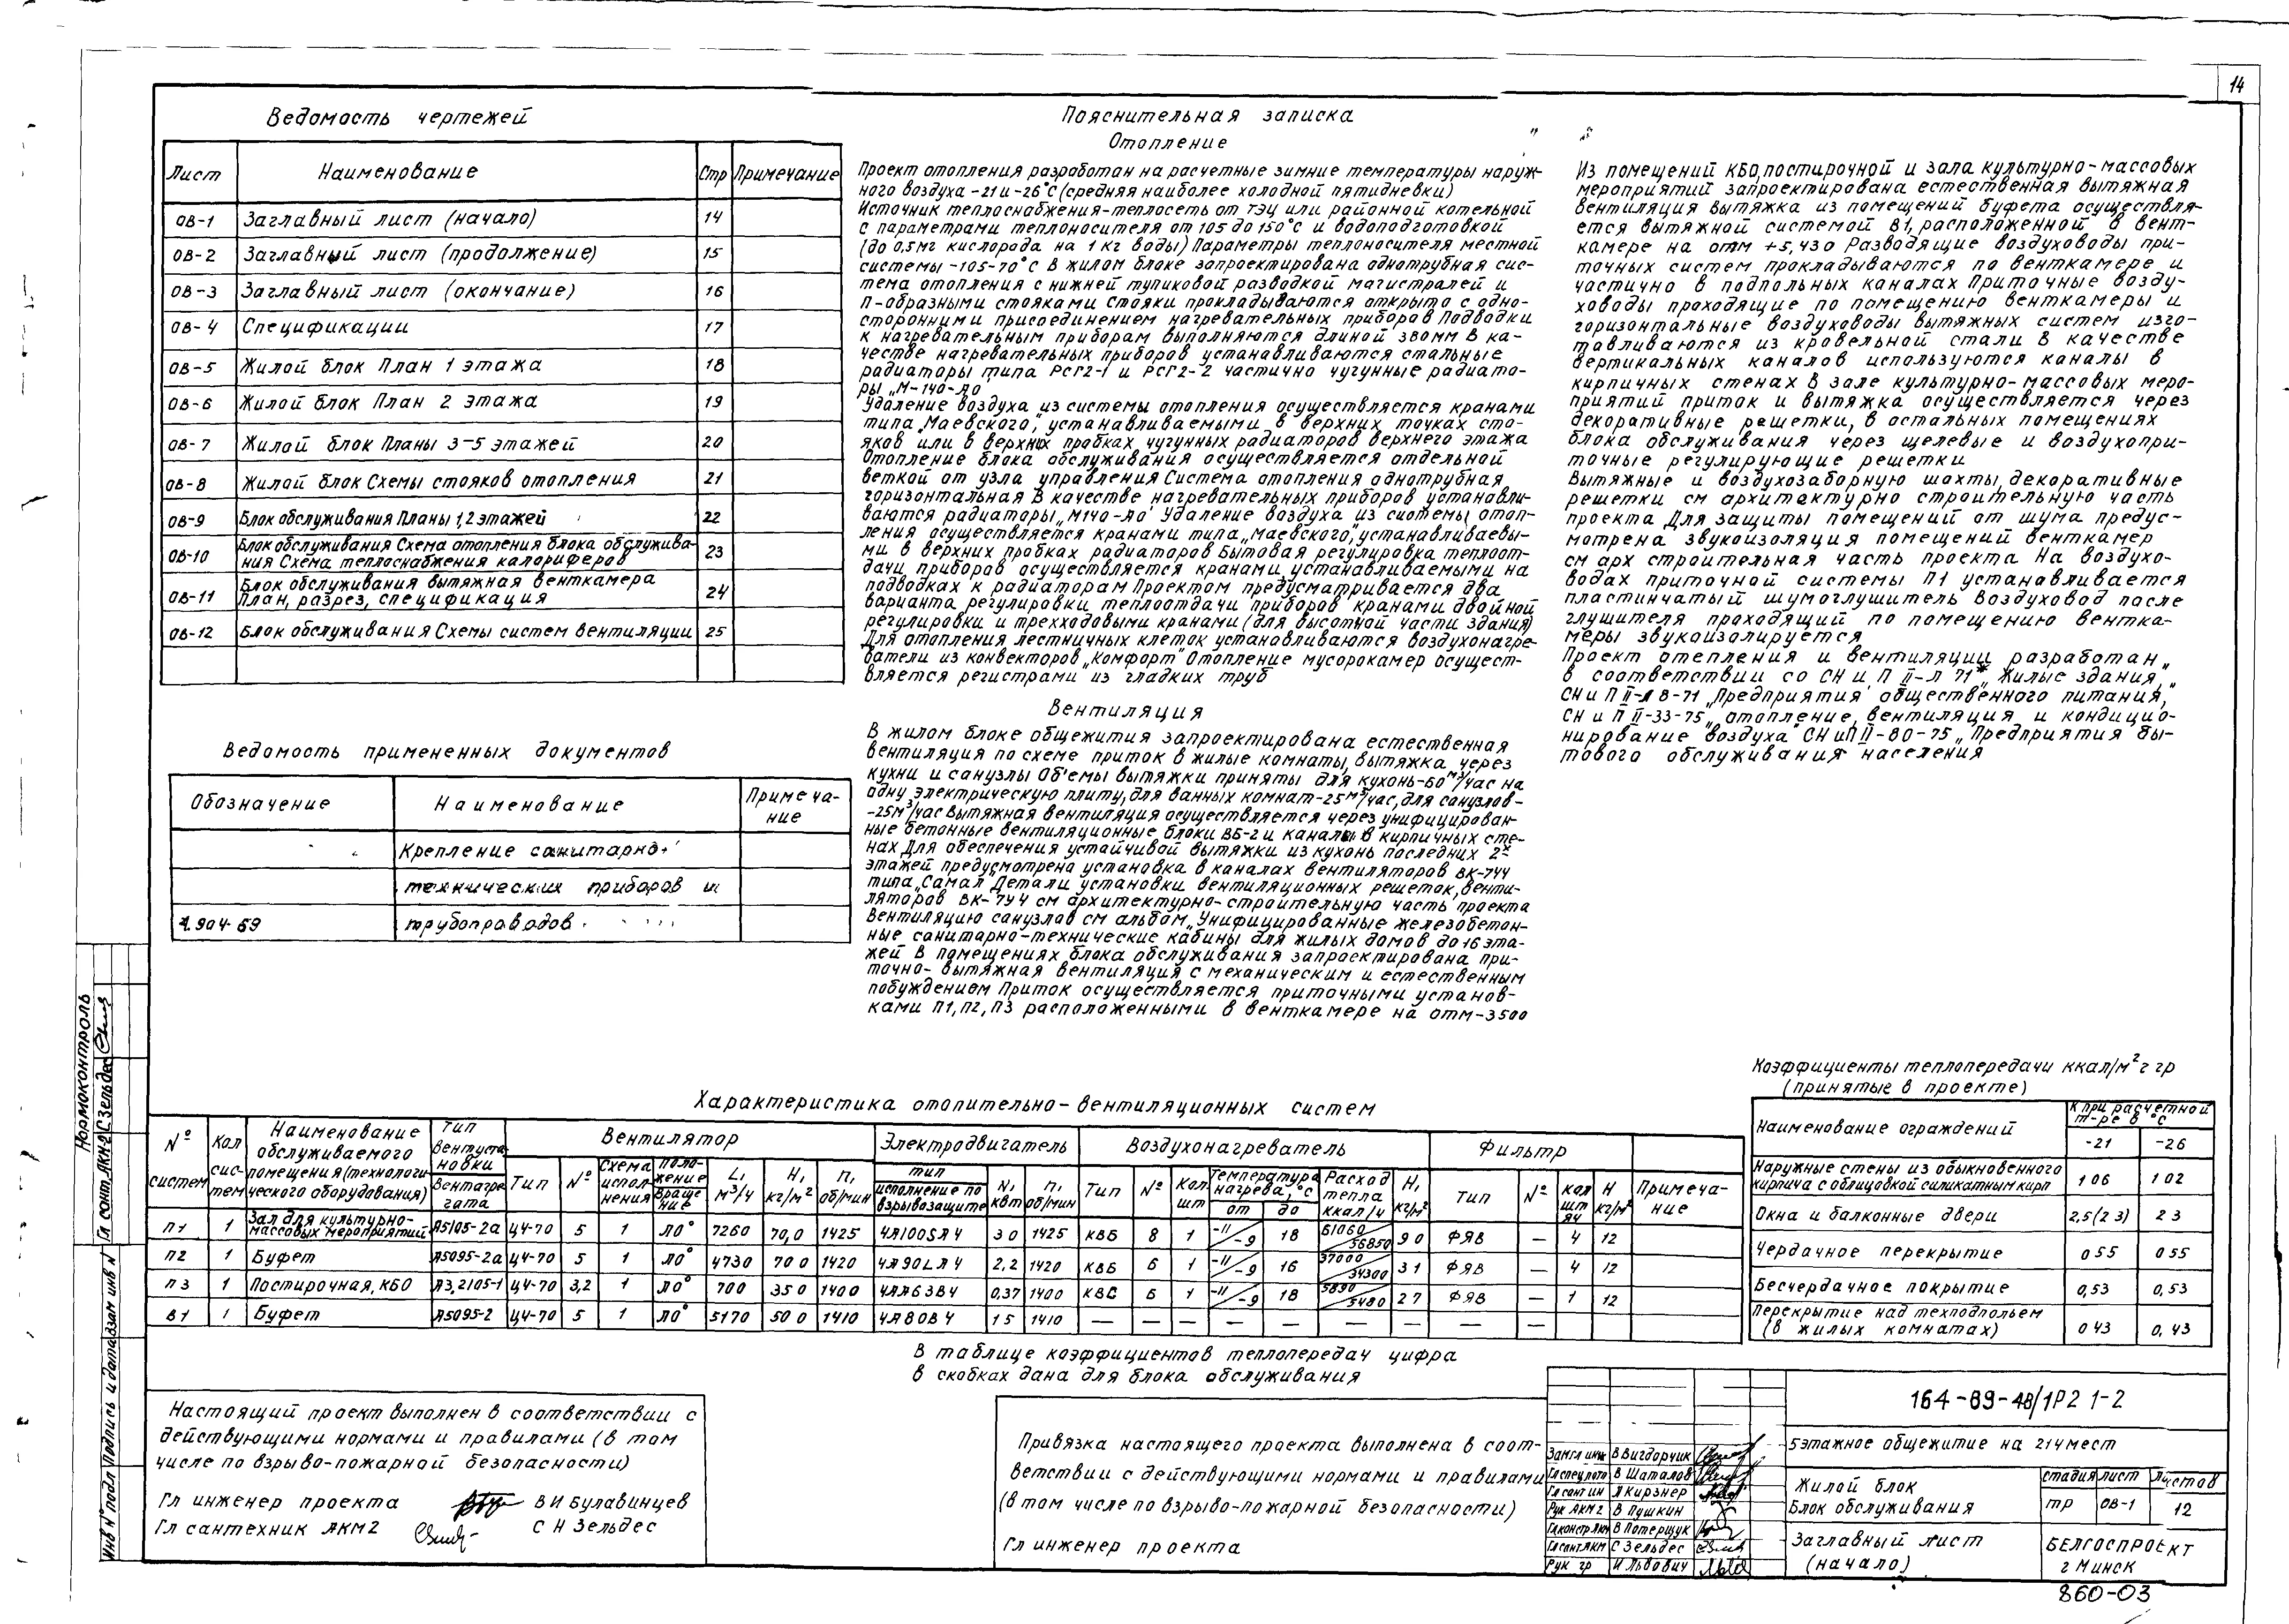 14
Ведомость чертежей
Лист Наименование Стр Примечание
ОВ-1 Заглавный лист (начало) 14
ОВ-2 Заглавный лист (продолжение) 15
ОВ-3 Заглавный лист (окончание) 16
ОВ-4 Спецификации 17
ОВ-5 Жилой блок План 1 этажа 18
ОВ-6 Жилой блок План 2 этажа 19
ОВ-7 Жилой блок Планы 3-5 этажей 20
ОВ-8 Жилой блок Схемы стояков отопления 21
ОВ-9 Блок обслуживания Планы 1,2 этажей 22
ОВ-10 Блок обслуживания Схема отопления блока обслужива-
ния Схема теплоснабжения калориферов 23
ОВ-11 Блок обслуживания вытяжная венткамера
План, разрез, спецификация 24
ОВ-12 Блок обслуживания Схемы систем вентиляции 25
Ведомость примененных документов
Обозначение Наименование Примеча-
ние
Крепление санитарно-
технических приборов и
4.904-69 трубопроводов
Пояснительная записка
Отопление
Проект отопления разработан на расчетные зимние температуры наруж-
ного воздуха -21 и -26°С (средняя наиболее холодной пятидневки)
Источник теплоснабжения-теплосеть от ТЭЦ или районной котельной
с параметрами теплоносителя от 105 до 150°С и водоподготовкой
(до 0,5мг кислорода на 1 кг воды) Параметры теплоносителя местной
системы -105-70°С В жилом блоке запроектирована однотрубная сис-
тема отопления с нижней тупиковой разводкой магистралей и
П-образными стояками Стояки прокладываются открыто с одно-
сторонними присоединением нагревательных приборов Подводки
к нагревательным приборам выполняются длиной 380мм В ка-
честве нагревательных приборов устанавливаются стальные
радиаторы типа РСГ2-1 и РСГ2-2 частично чугунные радиато-
ры „М-140-АО
Удаление воздуха из системы отопления осуществляется кранами
типа „Маевского", устанавливаемыми в верхних точках сто-
яков или в верхних пробках чугунных радиаторов верхнего этажа
Отопление блока обслуживания осуществляется отдельной
веткой от узла управления Система отопления однотрубная
горизонтальная В качестве нагревательных приборов устанавли-
ваются радиаторы „М140-АО" Удаление воздуха из системы отоп-
ления осуществляется кранами типа „Маевского", устанавливаевы-
ми в верхних пробках радиаторов Бытовая регулировка теплоот-
дачи приборов осуществляется кранами устанавливаемыми на
подводках к радиаторам Проектом предусматривается два
варианта регулировки теплоотдачи приборов кранами двойной
регулировки и трехходовыми кранами (для высотной части здания)
Для отопления лестничных клеток устанавливаются воздухонагре-
ватели из конвекторов „Комфорт" Отопление мусорокамер осущест-
вляется регистрами из гладких труб
Вентиляция
В жилом блоке общежития запроектирована естественная
вентиляция по схеме приток в жилые комнаты, вытяжка через
кухни и санузлы Объемы вытяжки приняты для кухонь-60м³/час на
одну электрическую плиту, для ванных комнат-25м³/час, для санузлов-
-25м³/час Вытяжная вентиляция осуществляется через унифицирован-
ные бетонные вентиляционные блоки ВБ-2 и каналы в кирпичных сте-
нах Для обеспечения устойчивой вытяжки из кухонь последних 2х
этажей предусмотрена установка в каналах вентиляторов ВК-7У4
типа „Самал Детали установки вентиляционных решеток, венти-
ляторов ВК-7У4 см архитектурно-строительную часть проекта
Вентиляцию санузлов см альбом „Унифицированные железобетон-
ные санитарно-технические кабины для жилых домов до 16 эта-
жей В помещениях блока обслуживания запроектирована при-
точно-вытяжная вентиляция с механическим и естественным
побуждением Приток осуществляется приточными установ-
ками П1, П2, П3 расположенными в венткамере на отм-3500
Из помещений КБО, постирочной и зала культурно-массовых
мероприятий запроектирована естественная вытяжная
вентиляция Вытяжка из помещений буфета осуществля-
ется вытяжной системой В1, расположенной в вент-
камере на отм +5,430 Разводящие воздуховоды при-
точных систем прокладываются по венткамере и
частично в подпольных каналах Приточные возду-
ховоды проходящие по помещению венткамеры и
горизонтальные воздуховоды вытяжных систем изго-
тавливаются из кровельной стали В качестве
вертикальных каналов используются каналы в
кирпичных стенах В зале культурно-массовых меро-
приятий приток и вытяжка осуществляется через
декоративные решетки, в остальных помещениях
блока обслуживания через щелевые и воздухопри-
точные регулирующие решетки
Вытяжные и воздухозаборную шахты, декоративные
решетки см архитектурно строительную часть
проекта Для защиты помещений от шума предус-
мотрена звукоизоляция помещений венткамер
см арх строительная часть проекта На воздухо-
водах приточной системы П1 устанавливается
пластинчатый шумоглушитель Воздуховод после
глушителя проходящий по помещению вентка-
меры звукоизолируется
Проект отепления и вентиляции разработан
в соответствии со СН и П II-Л 71* „Жилые здания"
СН и П II-Л 8-71 „Предприятия общественного питания,"
СН и П II-33-75 „отопление, вентиляция и кондицио-
нирование воздуха" СНиП II-80-75 „Предприятия бы-
тового обслуживания населения
Коэффициенты теплопередачи ккал/м² г гр
(принятые в проекте)
Наименование ограждений К при расчетной
т-ре в °С
-21 -26
Наружные стены из обыкновенного
кирпича с облицовкой силикатным кирп 1 06 1 02
Окна и балконные двери 2,5(2 3) 2 3
Чердачное перекрытие 0 55 0 55
Бесчердачное покрытие 0,53 0,53
Перекрытие над техподпольем
(в жилых комнатах) 0 43 0,43
Характеристика отопительно-вентиляционных систем
№ систем Кол сис-тем Наименование обслуживаемого помещения (технологического оборудования) Тип вентустановки вентагрегата Вентилятор Электродвигатель Воздухонагреватель Фильтр Примеча-ние
Тип № Схема исполнения Положение вращение L, м³/ч Н, кг/м² п, об/мин тип исполнение по взрывозащите N, квт п, об/мин Тип № Кол шт Температура нагрева, °С от до Расход тепла ккал/ч Н, кг/м² тип № кол шт яч Н кг/м²
П1 1 Зал для культурно-массовых мероприятий А5105-2а Ц4-70 5 1 ЛО° 7260 70,0 1425 4А100SА4 3 0 1425 КВБ 8 1 -11/-9 18 61060/56850 9 0 ФЯВ — 4 12
П2 1 Буфет А5095-2а Ц4-70 5 1 ЛО° 4730 70 0 1420 4А90LА4 2,2 1420 КВБ 6 1 -11/-9 16 37000/34300 3 1 ФЯВ — 4 12
П3 1 Постирочная, КБО А3,2105-1 Ц4-70 3,2 1 ЛО° 700 35 0 1400 4АА63В4 0,37 1400 КВС 6 1 -11/-9 18 5890/5480 2 7 ФЯВ — 1 12
В1 1 Буфет А5095-2 Ц4-70 5 1 ЛО° 5170 50 0 1410 4А80В4 1 5 1410 — — — — — — — — — —
В таблице коэффициентов теплопередач цифра
в скобках дана для блока обслуживания
Настоящий проект выполнен в соответствии с
действующими нормами и правилами (в том
числе по взрыво-пожарной безопасности)
Гл инженер проекта В И Булавинцев
Гл сантехник АКМ2 С Н Зельдес
Привязка настоящего проекта выполнена в соот-
ветствии с действующими нормами и правилами
(в том числе по взрыво-пожарной безопасности)
Гл инженер проекта
В Вигдорчик
В Шаталов
Гл сант ин Л Кирзнер
Рук АКМ2 В Пушкин
Гл констр АКМ В Потерщук
Гл сант АКМ С Зельдес
Рук гр И Львович
164-89-48/1Р2 1-2
5этажное общежитие на 214 мест
Жилой блок
Блок обслуживания
стадия лист листов
тр ОВ-1 12
Заглавный лист
(начало)
БЕЛГОСПРОЕКТ
г Минск
860-03
Нормоконтроль
Гл сант АКМ-2 С Зельдес
Инв № подл Подпись и дата Взам инв №